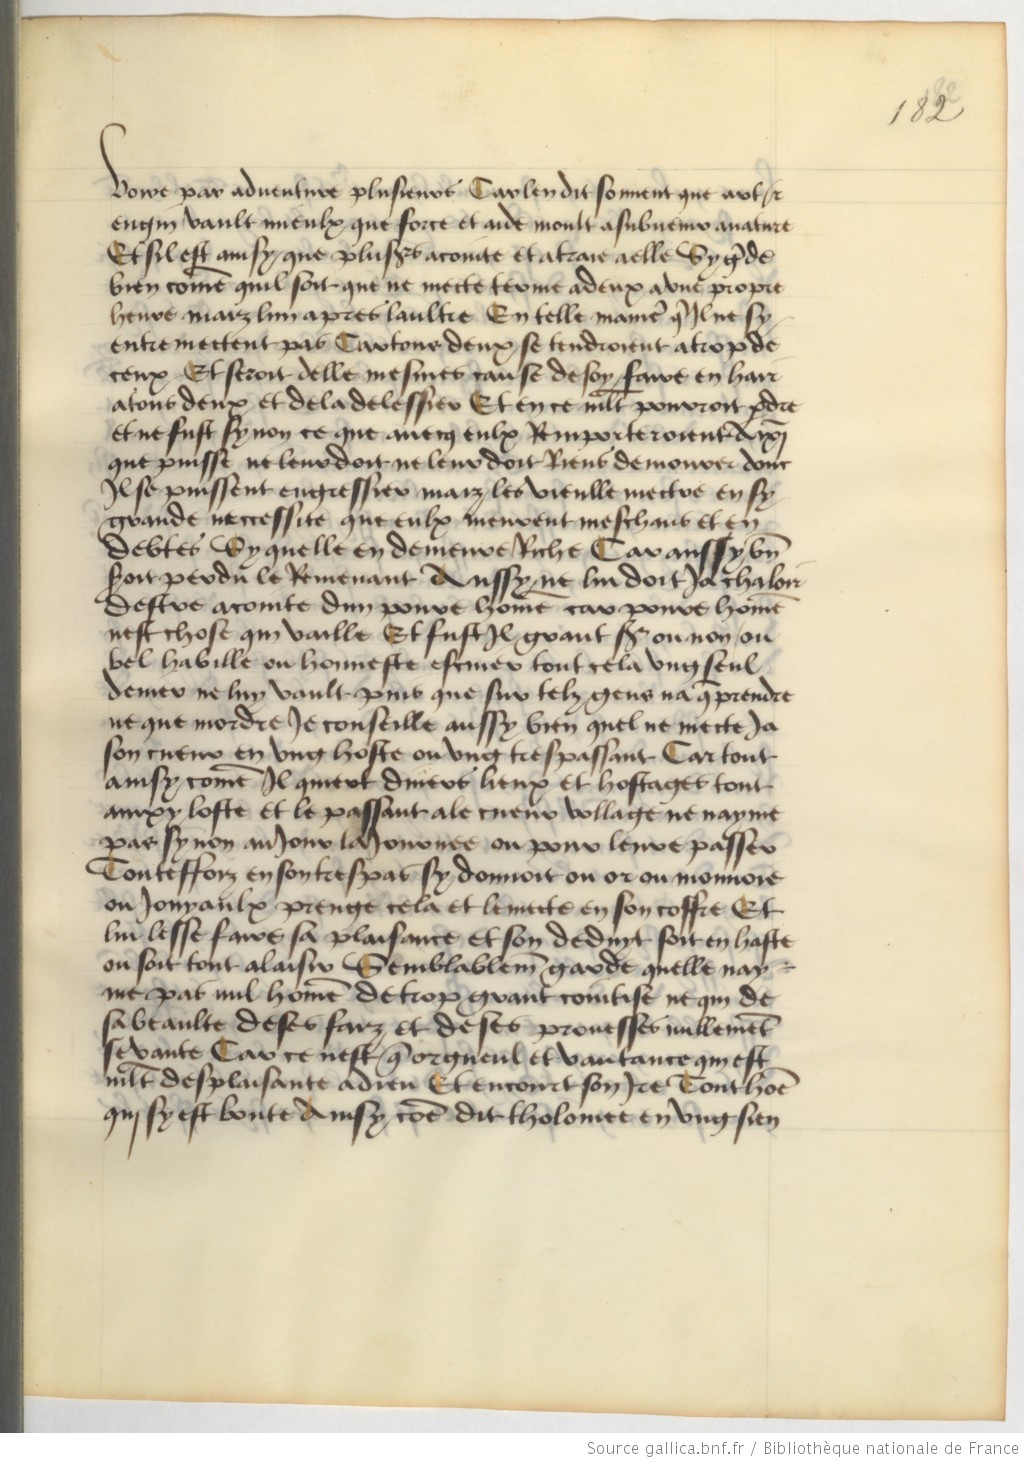 182
voire par adventure plusieurs Car len dit souvent que art et
engin vault mieulx que force et aide moult a subvenir a nature
Et sil est ainsy que plusrs acointe et atraie a elle Sy gde
bien come quil soit que ne mecte terme a deux a une propre
heure marz lun apres laultre En telle manie q Il ne sy
entremectent pas Car tous deux se tendroient a trop de
ceux Et seroit delle mesmes cause de soy faire en hair
a tous deux et de la delessier Et en ce mlt pourroit pdre
et ne fust sy non ce que avecq eulx Remporteroient Ainsi
que puisse ne leur doit ne leur doit Riens demourer dont
Il se puissent engressier marz les vieulle mectre en sy
grande neccessite que eulx meurent meschans et en
debtes Sy quelle en demeure Riche Car aussy bn
soit perdu le Remenant Aussy ne lui doit Ja chaloir
destre acointe dun povre home car povre home
nest chose qui vaille Et fust Il grant sr ou non ou
bel habille ou honneste escuier tout cela ung seul
denier ne luy vault puis que sur telz gens na q prendre
ne que mordre Je conseille aussy bien quel ne mecte Ja
son cueur en ung hoste ou ung trespassant Car tout
ainsy come Il quiert divers lieux et hostages tout
ainxy loste et le passant a le cueur vollage ne nayme
pas sy non au Jour la Journee ou pour leure passer
Toutefforz en son trespas sy donnoit ou or ou monnoie
ou Jouyaulx prenge cela et le mecte en son coffre Et
lui lesse faire sa plaisance et son deduyt soit en haste
ou soit tout a laisir Semblablem garde quelle nay-
me pas nul home de trop grant cointise ne qui de
sa beaulte de ses farz et de ses prouesses nullemet
se vante Car ce nest q orgueul et vautance qui est
mlt desplaisante a dieu Et encourt son Ire Tout hoe
qui sy est boute Ainsy coe dit tholomee en ung sien
Source gallica.bnf.fr / Bibliothèque nationale de France